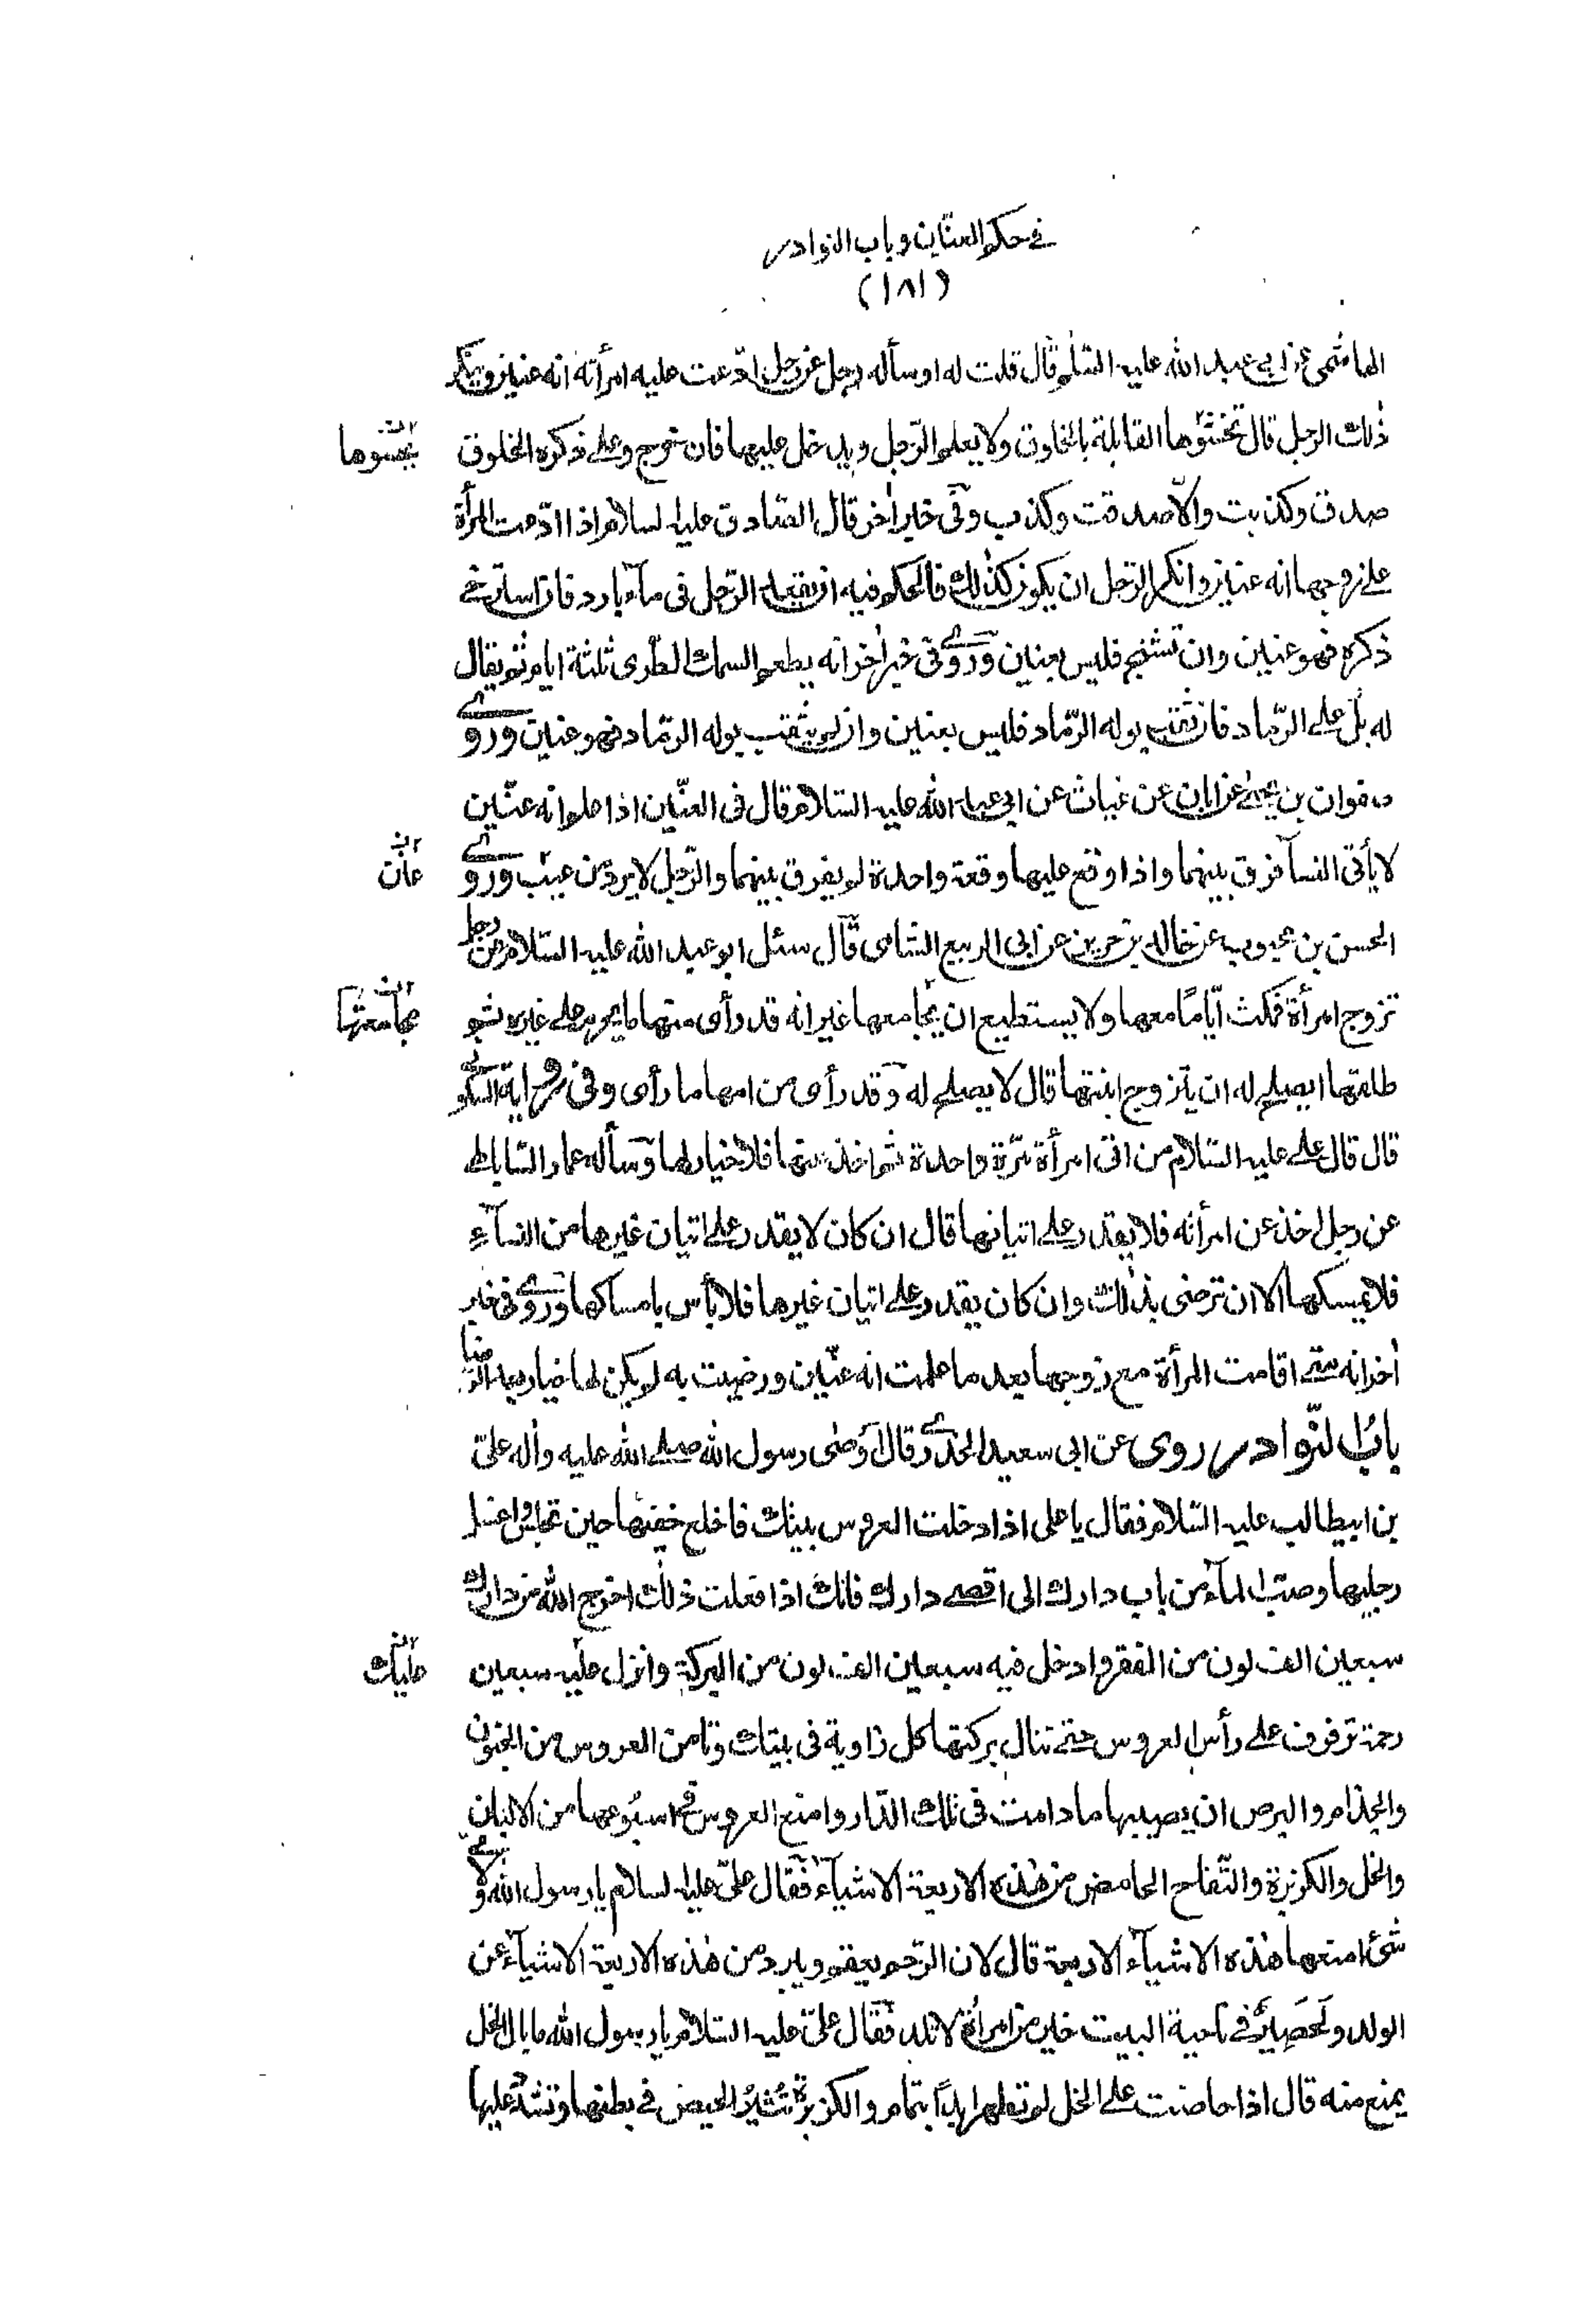 في حكم العنين وباب النوادر
(١٨١)
الهاشمي عن ابي عبد الله عليه السّلم قال قلت له او سأله رجل عن رجل ادّعت عليه امرأته انه عنين وينكر
ذلك الرجل قال تحشوها القابلة بالخلوق ولا يعلم الرّجل ويدخل عليها فان خرج وعلى ذكره الخلوق
صدق وكذبت والّا صدقت وكذب وفي خبر اخر قال الصّادق عليه السلام اذا ادّعت المرأة
على زوجها انه عنين وانكر الرّجل ان يكون كذلك فالحكم فيه ان يقعد الرّجل في مآء بارد فان استرخى
ذكره فهو عنين وان تشنج فليس بعنين وروى في خبر اخر انه يطعم السمك الطّرى ثلثة ايام ثم يقال
له بل على الرّماد فان ثقب بوله الرّماد فليس بعنين وان لم يثقب بوله الرّماد فهو عنين وروى
صفوان بن يحيى عن ابان عن غياث عن ابي عبد الله عليه السّلام قال في العنّين اذا علم انه عنّين
لا يأتى النسآء فرق بينهما واذا وقع عليها وقعة واحدة لم يفرق بينهما والرّجل لا يرد من عيب وروى
الحسن بن محبوب عن خالد بن جرير عن ابي الربيع الشّامى قال سئل ابو عبد الله عليه السّلام عن رجل
تزوج امرأة فمكث ايّامًا معها ولا يستطيع ان يجامعها غير انه قد رأى منها ما يحرم على غيره ثم
طلقها ايصلح له ان يتزوج ابنتها قال لا يصلح له وقد رأى من امها ما رأى وفي رواية السكونى
قال قال على عليه السّلام من اتى امرأة مرّة واحدة ثم اخذ عنها فلا خيار لها وسأله عمار السّاباطى
عن رجل اخذ عن امرأته فلا يقدر على اتيانها قال ان كان لا يقدر على اتيان غيرها من النسآء
فلا يمسكها الا ان ترضى بذلك وان كان يقدر على اتيان غيرها فلا بأس بامساكها وروى في خبر
اخر انه متى اقامت المرأة مع زوجها بعد ما علمت انه عنّين ورضيت به لم يكن لها خيار بعد الرّضا
بابُ النّوادر روى عن ابي سعيد الخدرى قال اوصى رسول الله صلى الله عليه واله علىّ
بن ابيطالب عليه السّلام فقال يا على اذا دخلت العروس بيتك فاخلع خفيها حين تجلس واغسل
رجليها وصبّ المآء من باب دارك الى اقصى دارك فانك اذا فعلت ذلك اخرج الله من دارك
سبعين الف لون من الفقر وادخل فيه سبعين الف لون من البركة وانزل عليه سبعين
رحمة ترفرف على رأس العروس حتى تنال بركتها كل زاوية في بيتك وتامن العروس من الجنون
والجذام والبرص ان يصيبها ما دامت في تلك الدّار وامنع العروس في اسبُوعها من الالبان
والخل والكزبرة والتّفاح الحامض من هذه الاربعة الاشيآء فقال علىّ عليه السلام يا رسول الله ولاىّ
شئ امنعها هذه الاشيآء الاربعة قال لان الرّحم يعقم ويبرد من هذه الاربعة الاشيآء عن
الولد ولحَصِيرٌ في ناحية البيت خير من امرأة لا تلد فقال علىّ عليه السّلام يا رسول الله ما بال الخل
يمنع منه قال اذا حاضت على الخل لم تطهر ابدًا بتمام والكزبرة تُثيرُ الحيض في بطنها وتشدّ عليها
عان
مجامعتها
عليك